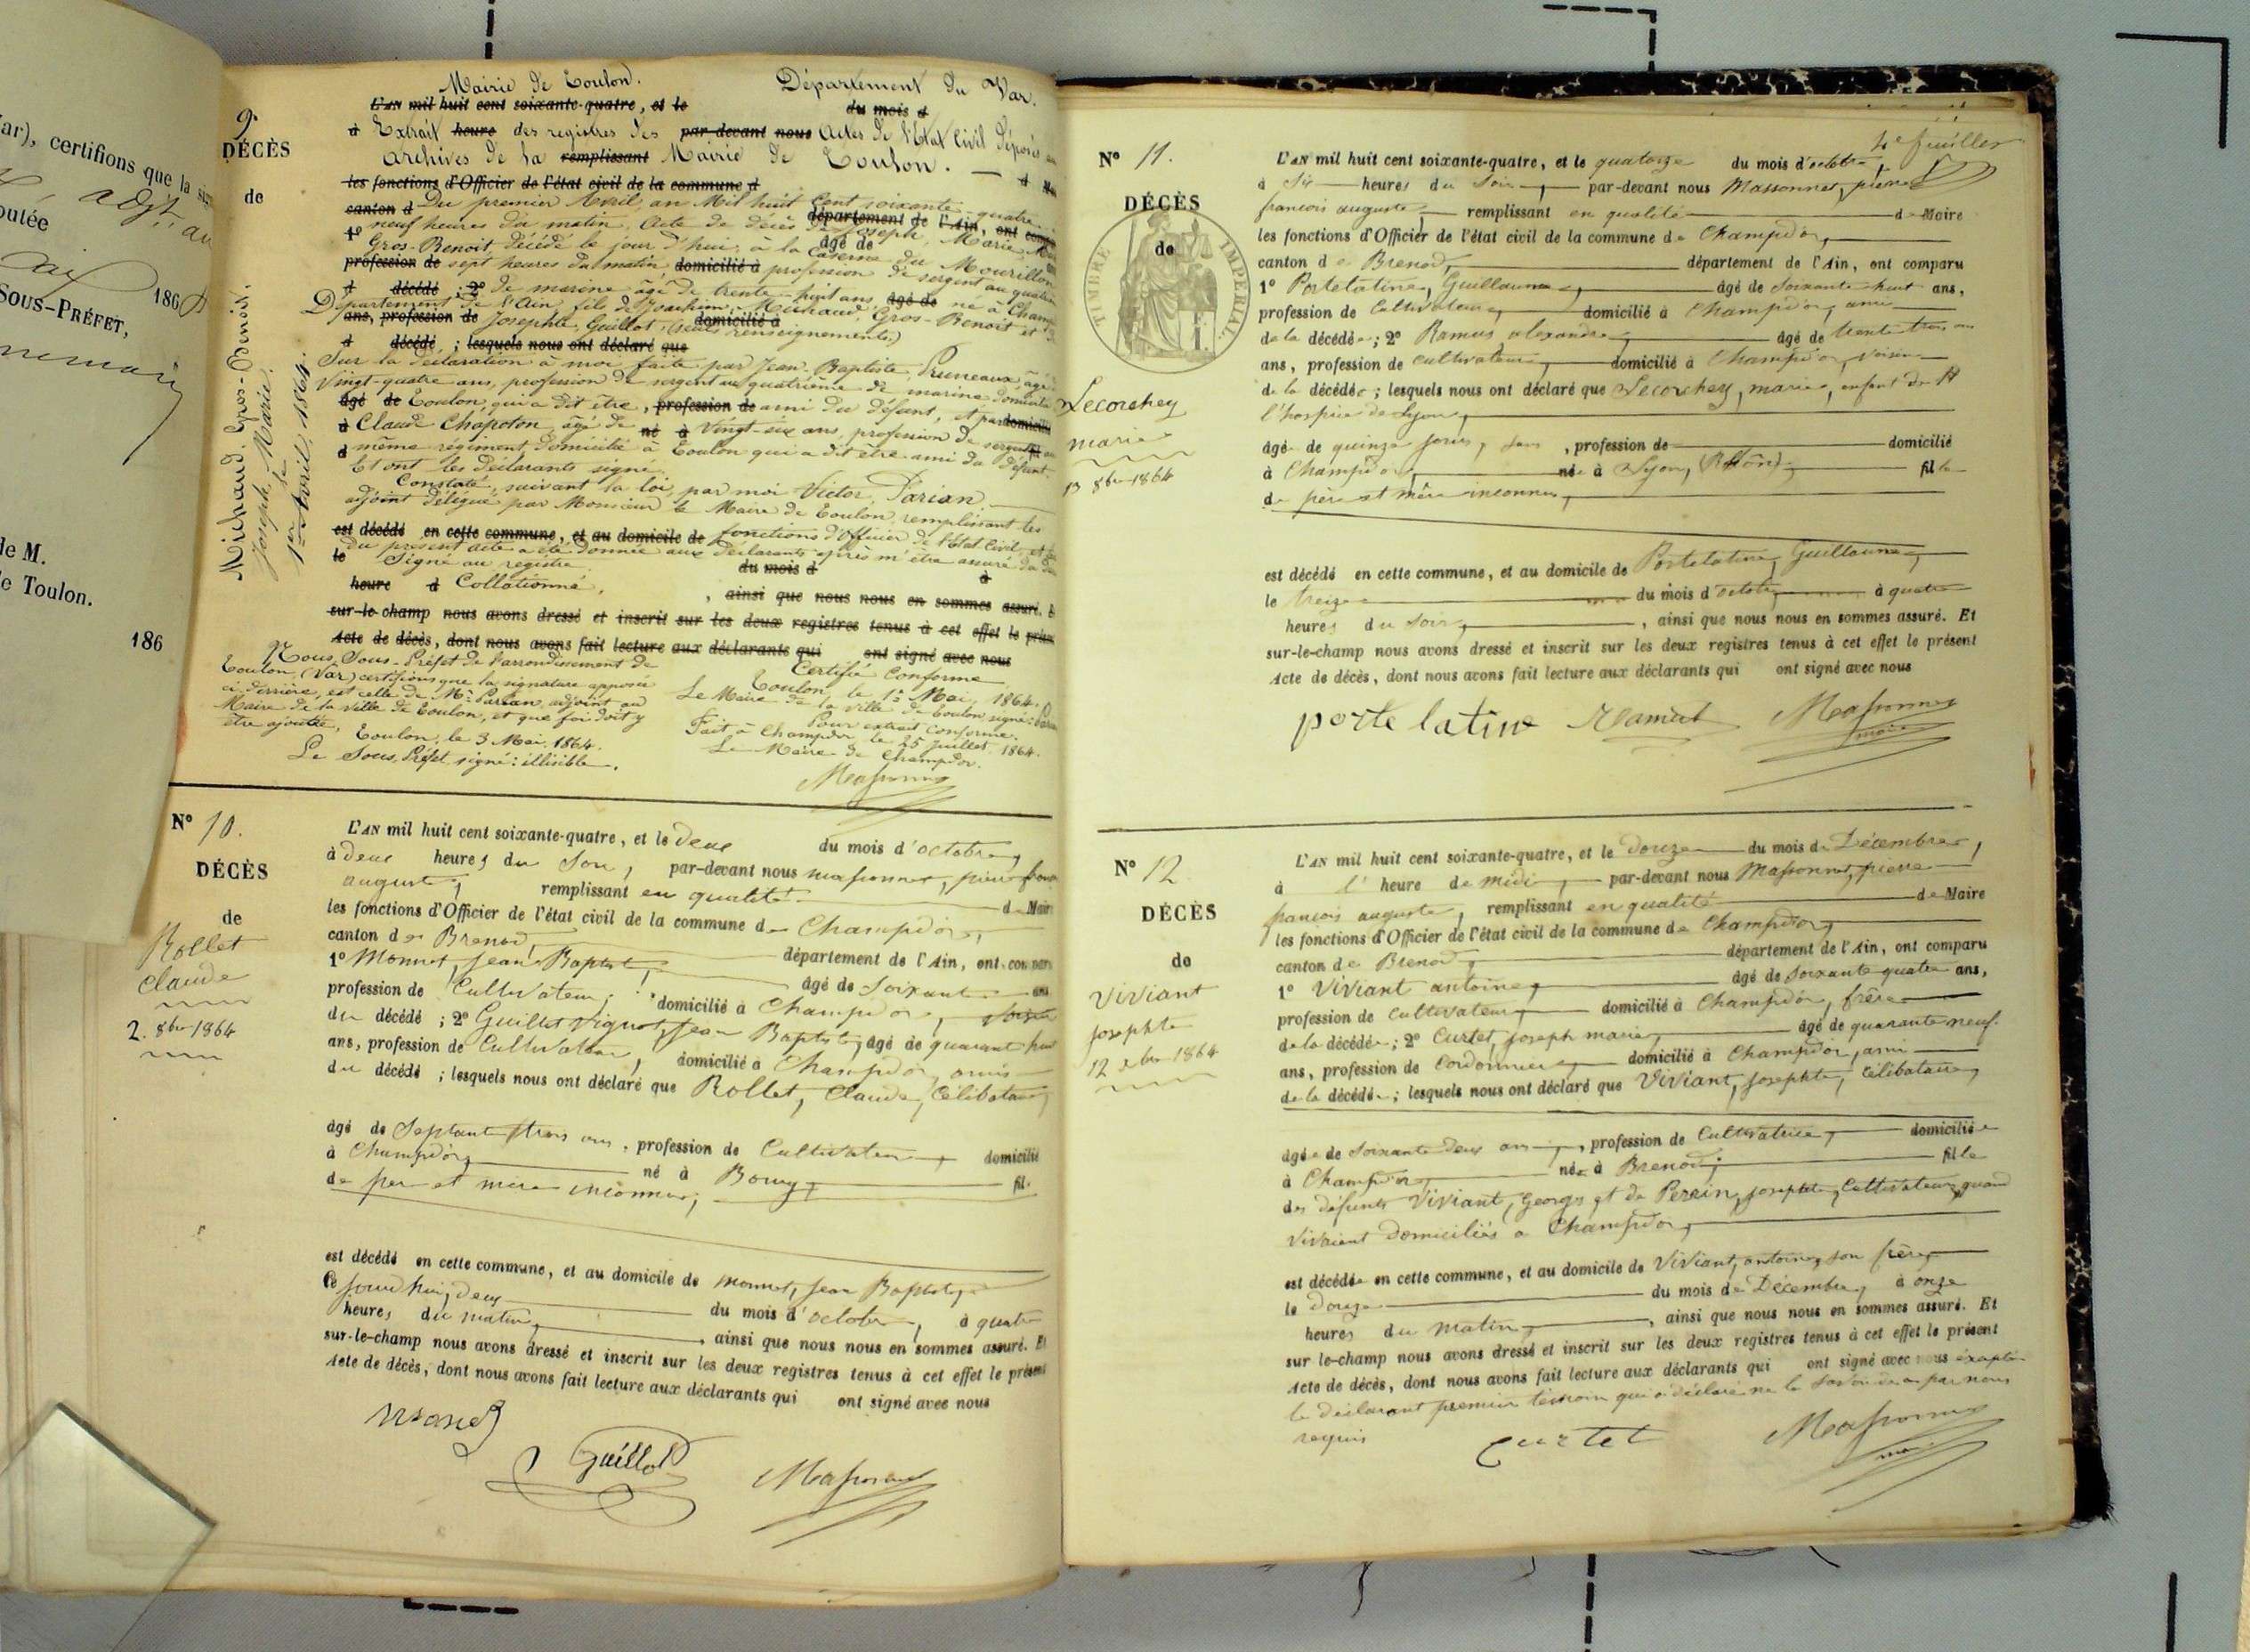 ar), certifions que la sig
adjt. au
outée
186
SOUS-PRÉFET,
de M.
e Toulon.
186
Mairie de Toulon. Département du Var.
9.
DÉCÈS
de
Michaud Gros-Benoit.
Joseph, Marie.
1er Avril, 1864.
L'AN mil huit cent soixante-quatre, et le du mois d
à Extrait heure des registres des par-devant nous Actes de l'Etat Civil déposés
archives de la remplissant Mairie de Toulon.
les fonctions d'Officier de l'état civil de la commune d
canton d Du premier Avril, an Mil huit Cent soixante-quatre
département de l'Ain, ont
neuf heures du matin. Acte de décès de Joseph, Marie,
1° Gros-Benoit décédé le jour d'hui, à la Caserne du Mourillon
âgé de
profession de sept heures du matin, domicilié à profession de sergent au quatrième
d décédé ; 2° de marine âgé de trente-huit ans, âgé de né à Champ
Département de l'Ain, fils de Joachim, Michaud Gros-Benoit et de
ans, profession de Josephte, Guillot, (seuls renseignements.) domicilié à
d décédé ; lesquels nous ont déclaré que
Sur la déclaration à moi faite par Jean-Baptiste, Pruneaux, âgé
Vingt-quatre ans, profession de sergent au quatrième de marine domicilié
âgé de Toulon, qui a dit être, profession de ami du défunt, et par domicilié
à Claude Chapoton, âgé de né à Vingt-six ans, profession de sergent au
d même régiment, domicilié à Toulon qui a dit être ami du défunt.
Et ont les déclarants signé.
Constaté, suivant la loi, par moi Victor, Parian,
adjoint délégué par Monsieur le Maire de Toulon, remplissant les
est décédé en cette commune, et au domicile de fonctions d'Officier de l'Etat Civil, et
du présent acte a été donnée aux déclarants après m'être assuré du
le Signé au registre. du mois d à
heure d Collationné. , ainsi que nous nous en sommes assuré. Et
sur-le-champ nous avons dressé et inscrit sur les deux registres tenus à cet effet le
Acte de décès, dont nous avons fait lecture aux déclarants qui ont signé avec nous
Nous, Sous-Préfet de l'arrondissement de
Toulon, (Var) certifions que la signature apposée
ci derrière, est celle de Mr Parian, adjoint au
Maire de la ville de Toulon, et que foi doit y
être ajoutée. Toulon, le 3 Mai, 1864.
Le Sous Préfet signé: illisible.
Certifié Conforme
Toulon, le 1er Mai, 1864.
Le Maire de la ville de Toulon, signé:
Pour extrait conforme.
Fait à Champdor le 25 Juillet 1864.
Le Maire de Champdor.
Massonnet
N° 10.
DÉCÈS
de
Rollet
Claude
2. 8bre 1864
L'AN mil huit cent soixante-quatre, et le deux du mois d'octobre,
à deux heures du Soir, par-devant nous Massonnet, pierre
auguste, remplissant en qualité de Maire
les fonctions d'Officier de l'état civil de la commune de Champdor,
canton de Brenod, département de l'Ain, ont comparu
1° Monnet, Jean Baptiste, âgé de Soixante ans
profession de Cultivateur, domicilié à Champdor, voisin
du décédé ; 2° Guillot Vignot, Jean Baptiste, âgé de quarante huit
ans, profession de Cultivateur, domicilié à Champdor, amis
du décédé ; lesquels nous ont déclaré que Rollet, Claude, Célibataire,
âgé de Septante trois ans, profession de Cultivateur, domicilié
à Champdor, né à Bourg, fil
de per et mère inconnus,
est décédé en cette commune, et au domicile de Monnet, Jean Baptiste,
Ce jourd'hui, deux du mois d'octobre, à quatre
heures du matin, ainsi que nous nous en sommes assuré. Et
sur-le-champ nous avons dressé et inscrit sur les deux registres tenus à cet effet le présent
Acte de décès, dont nous avons fait lecture aux déclarants qui ont signé avec nous
Guillot
Massonnet
4e feuillet
N° 11.
DÉCÈS
de
TIMBRE IMPERIAL.
Lecorchey
marie
13 8bre 1864
L'AN mil huit cent soixante-quatre, et le quatorze du mois d'octobre,
à Six heures du Soir, par-devant nous Massonnet, pierre
françois auguste, remplissant en qualité de Maire
les fonctions d'Officier de l'état civil de la commune de Champdor,
canton de Brenod, département de l'Ain, ont comparu
1° Portelatine, Guillaume, âgé de Soixante huit ans,
profession de Cultivateur, domicilié à Champdor, ami
de la décédée ; 2° Ramus alexandre, âgé de trente trois ans
ans, profession de cultivateur, domicilié à Champdor, voisin
de la décédée ; lesquels nous ont déclaré que Lecorchey, marie, enfant de
l'hospice de Lyon,
âgé de quinze jours, sans, profession de domicilié
à Champdor, née à Lyon, (Rhône), fille
de père et mère inconnus,
est décédé en cette commune, et au domicile de Portelatine, Guillaume,
le treize du mois d'octobre, à quatre
heures du Soir, ainsi que nous nous en sommes assuré. Et
sur-le-champ nous avons dressé et inscrit sur les deux registres tenus à cet effet le présent
Acte de décès, dont nous avons fait lecture aux déclarants qui ont signé avec nous
porte latine Ramus Massonnet
maire
N° 12
DÉCÈS
de
Viviant
Josephte
12 xbre 1864
L'AN mil huit cent soixante-quatre, et le douze du mois de Décembre,
à l' heure de midi, par-devant nous Massonnet, pierre
françois auguste, remplissant en qualité de Maire
les fonctions d'Officier de l'état civil de la commune de Champdor,
canton de Brenod, département de l'Ain, ont comparu
1° Viviant antoine, âgé de soixante quatre ans,
profession de cultivateur, domicilié à Champdor, frère
de la décédée ; 2° Curtet, joseph marie, âgé de quarante neuf
ans, profession de Cordonnier, domicilié à Champdor, ami
de la décédée ; lesquels nous ont déclaré que Viviant, josephte, Célibataire,
âgée de Soixante deux ans, profession de Cultivatrice, domiciliée
à Champdor, née à Brenod, fille
des défunts Viviant, Georges et de Perrin, josephte, Cultivateurs, quand
vivaient domiciliés à Champdor,
est décédée en cette commune, et au domicile de Viviant, antoine, son frère,
le douze du mois de Décembre, à onze
heures du matin, ainsi que nous nous en sommes assuré. Et
sur le-champ nous avons dressé et inscrit sur les deux registres tenus à cet effet le présent
Acte de décès, dont nous avons fait lecture aux déclarants qui ont signé avec nous éxepté
le déclarant premier témoin qui a déclaré ne le savoir de ce par nous
requis
Curtet Massonnet